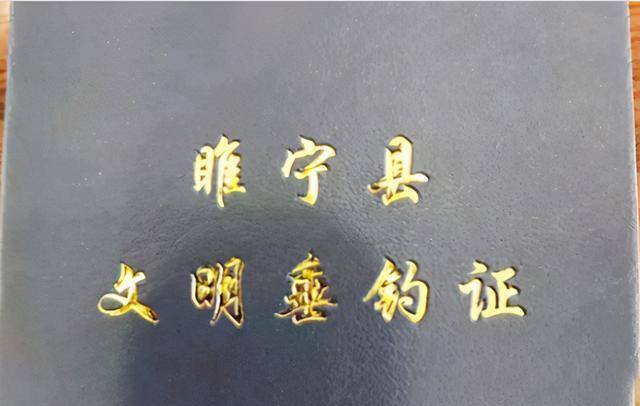 睢宁县
文明垂钓证